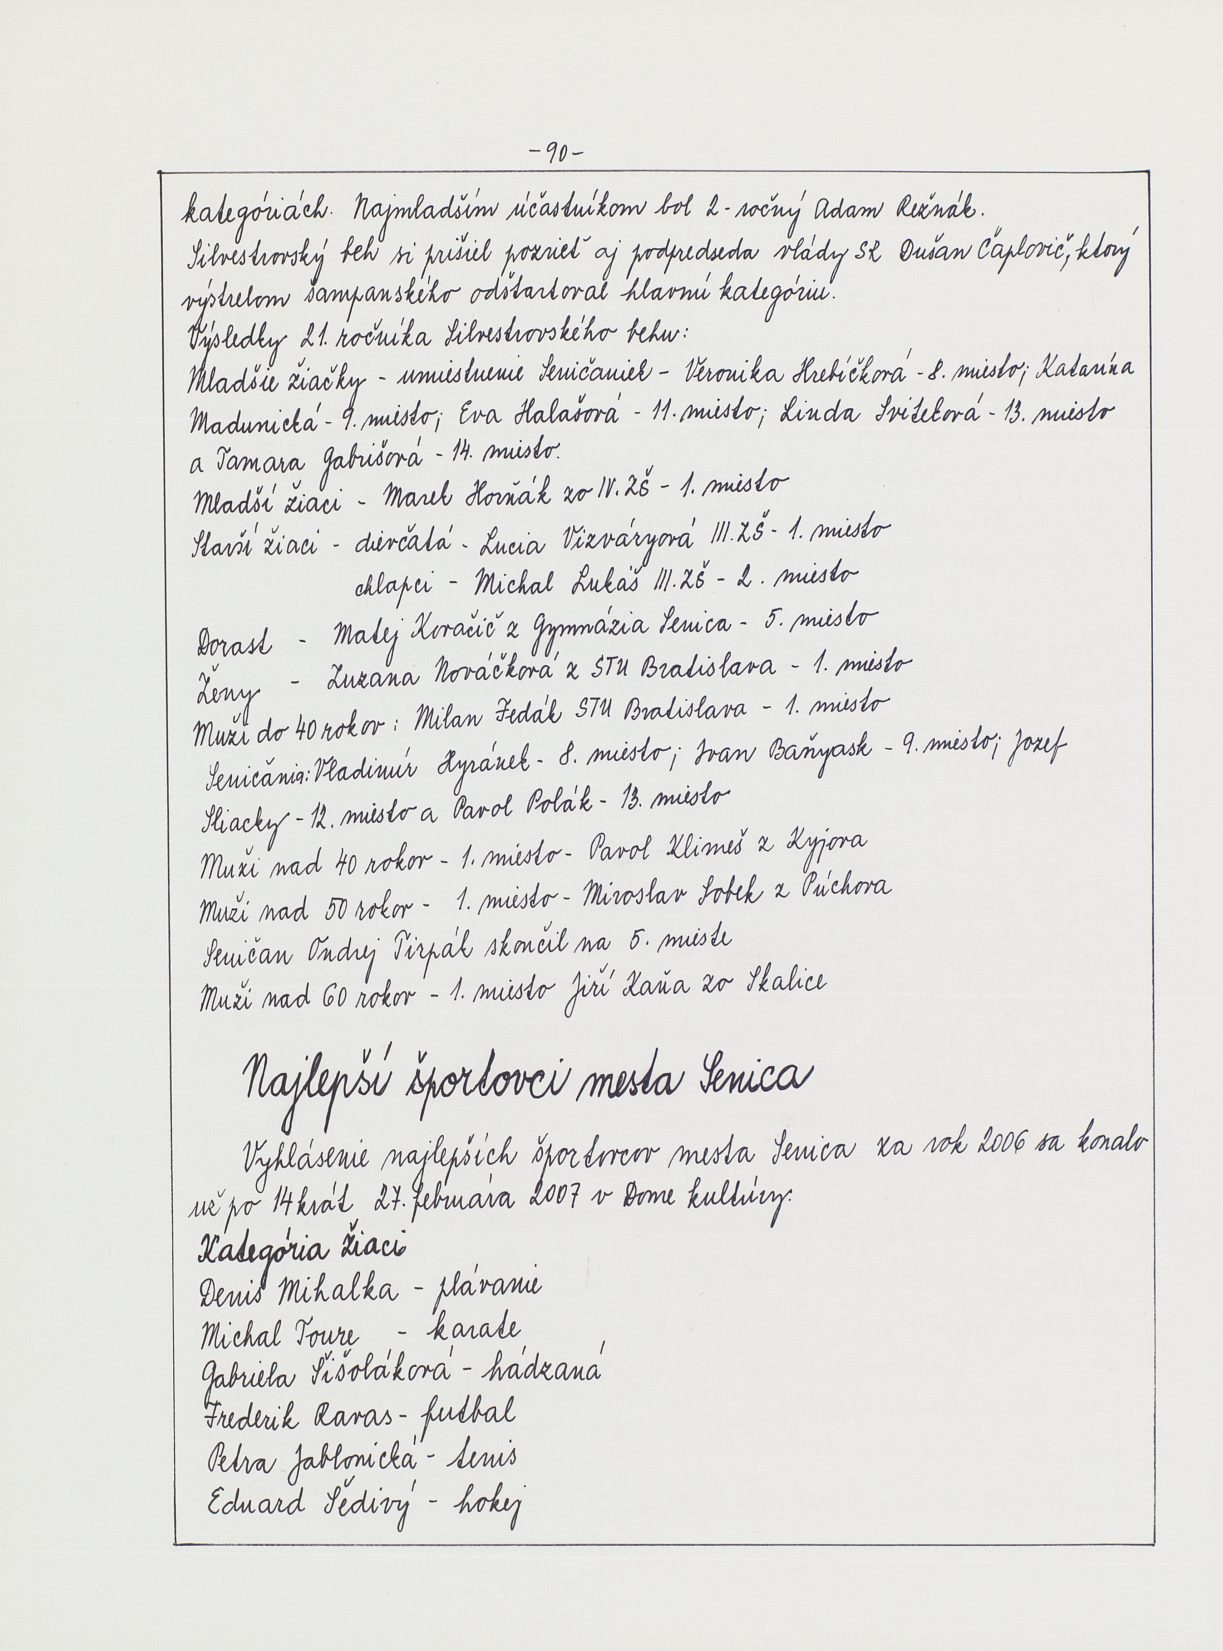 -90-
kategóriách. Najmladším účastníkom bol 2-ročný Adam Režnák.
Silvestrovský beh si prišiel pozrieť aj podpredseda vlády SR Dušan Čaplovič, ktorý
výstrelom šampanského odštartoval hlavnú kategóriu.
Výsledky 21. ročníka Silvestrovského behu:
Mladšie žiačky - umiestnenie Seničaniek - Veronika Hrebíčková - 8. miesto; Katarína
Madunická - 9. miesto; Eva Halašová - 11. miesto; Linda Sviteková - 13. miesto
a Tamara Gabrišová - 14. miesto.
Mladší žiaci - Marek Horňák zo IV. ZŠ - 1. miesto
Starší žiaci - dievčatá - Lucia Vizváryová III. ZŠ - 1. miesto
chlapci - Michal Lukáš III. ZŠ - 2. miesto
Dorast - Matej Kovačič z Gymnázia Senica - 5. miesto
Ženy - Zuzana Nováčková z STU Bratislava - 1. miesto
Muži do 40 rokov: Milan Fedák STU Bratislava - 1. miesto
Seničania: Vladimír Hyránek - 8. miesto; Ivan Baňyask - 9. miesto; Jozef
Sliacky - 12. miesto a Pavol Polák - 13. miesto
Muži nad 40 rokov - 1. miesto - Pavol Klimeš z Kyjova
Muži nad 50 rokov - 1. miesto - Miroslav Sobek z Púchova
Seničan Ondrej Tirpák skončil na 5. mieste
Muži nad 60 rokov - 1. miesto Jiří Kaňa zo Skalice
Najlepší športovci mesta Senica
Vyhlásenie najlepších športovcov mesta Senica za rok 2006 sa konalo
už po 14krát 27. februára 2007 v Dome kultúry.
Kategória žiaci
Denis Mihalka - plávanie
Michal Toure - karate
Gabriela Šišoláková - hádzaná
Frederik Ravas - futbal
Petra Jablonická - tenis
Eduard Šedivý - hokej